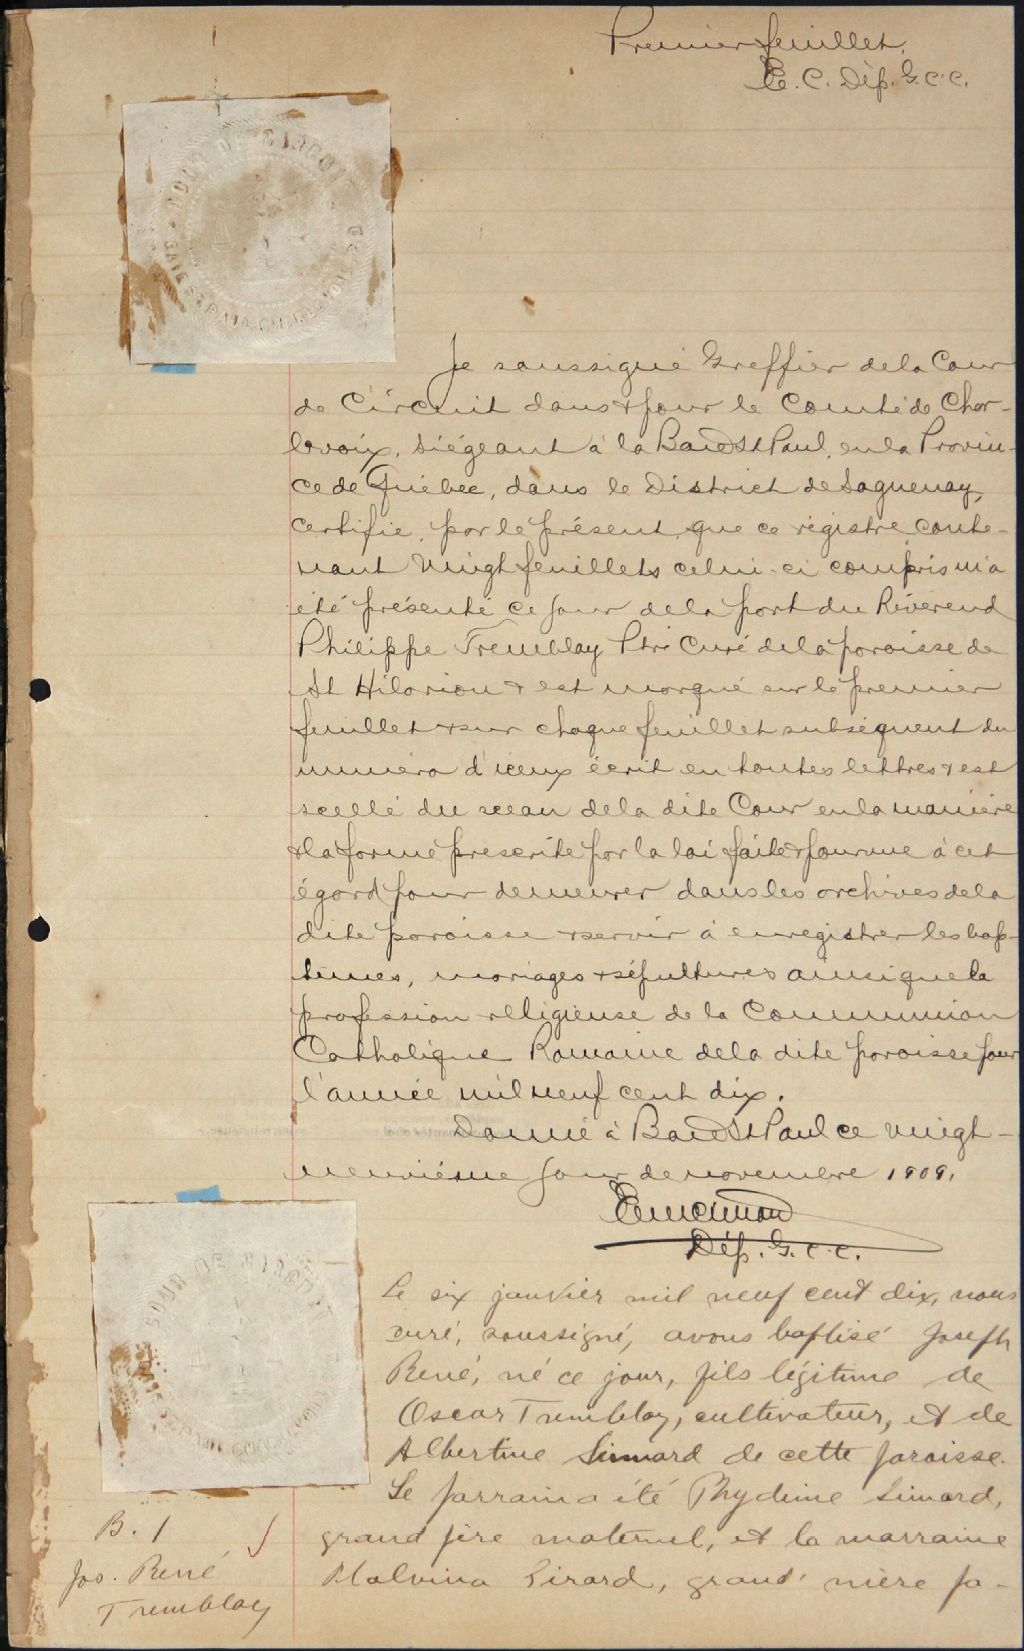 Premier feuillet.
E. C. Dép. G.C.C.
COUR DE CIRCUIT
Je soussigné Greffier de la Cour
de Circuit dans & pour le Comté de Char-
levoix, siégeant à la Baie St Paul, en la Provin-
ce de Québec, dans le District de Saguenay,
certifie, par le présent, que ce régistre conte-
nant vingt feuillets celui-ci compris m'a
été présenté ce jour de la part du Révérend
Philippe Tremblay Ptre Curé de la paroisse de
St Hilarion & est marqué sur le premier
feuillet & sur chaque feuillet subséquent du
numéro d'iceux écrit en toutes lettres & est
scellé du sceau de la dite Cour en la manière
& la forme prescrite par la loi faite & pourvue à cet
égard pour demeurer dans les archives de la
dite paroisse & servir à enregistrer les bap-
têmes, mariages & sépultures ainsi que la
profession religieuse de la Communion
Catholique Romaine de la dite paroisse pour
l'année mil neuf cent dix.
Donné à Baie St Paul ce vingt-
neuvième jour de novembre 1909.
Dép. G.C.C.
COUR DE CIRCUIT
Le six janvier mil neuf cent dix, nous
curé, soussigné, avons baptisé Joseph
René, né ce jour, fils légitime de
Oscar Tremblay, cultivateur, et de
Albertine Simard de cette paroisse.
Le parrain a été Phydime Simard,
grand père maternel, et la marraine
Malvina Girard, grand' mère pa-
B. 1
Jos. René
Tremblay